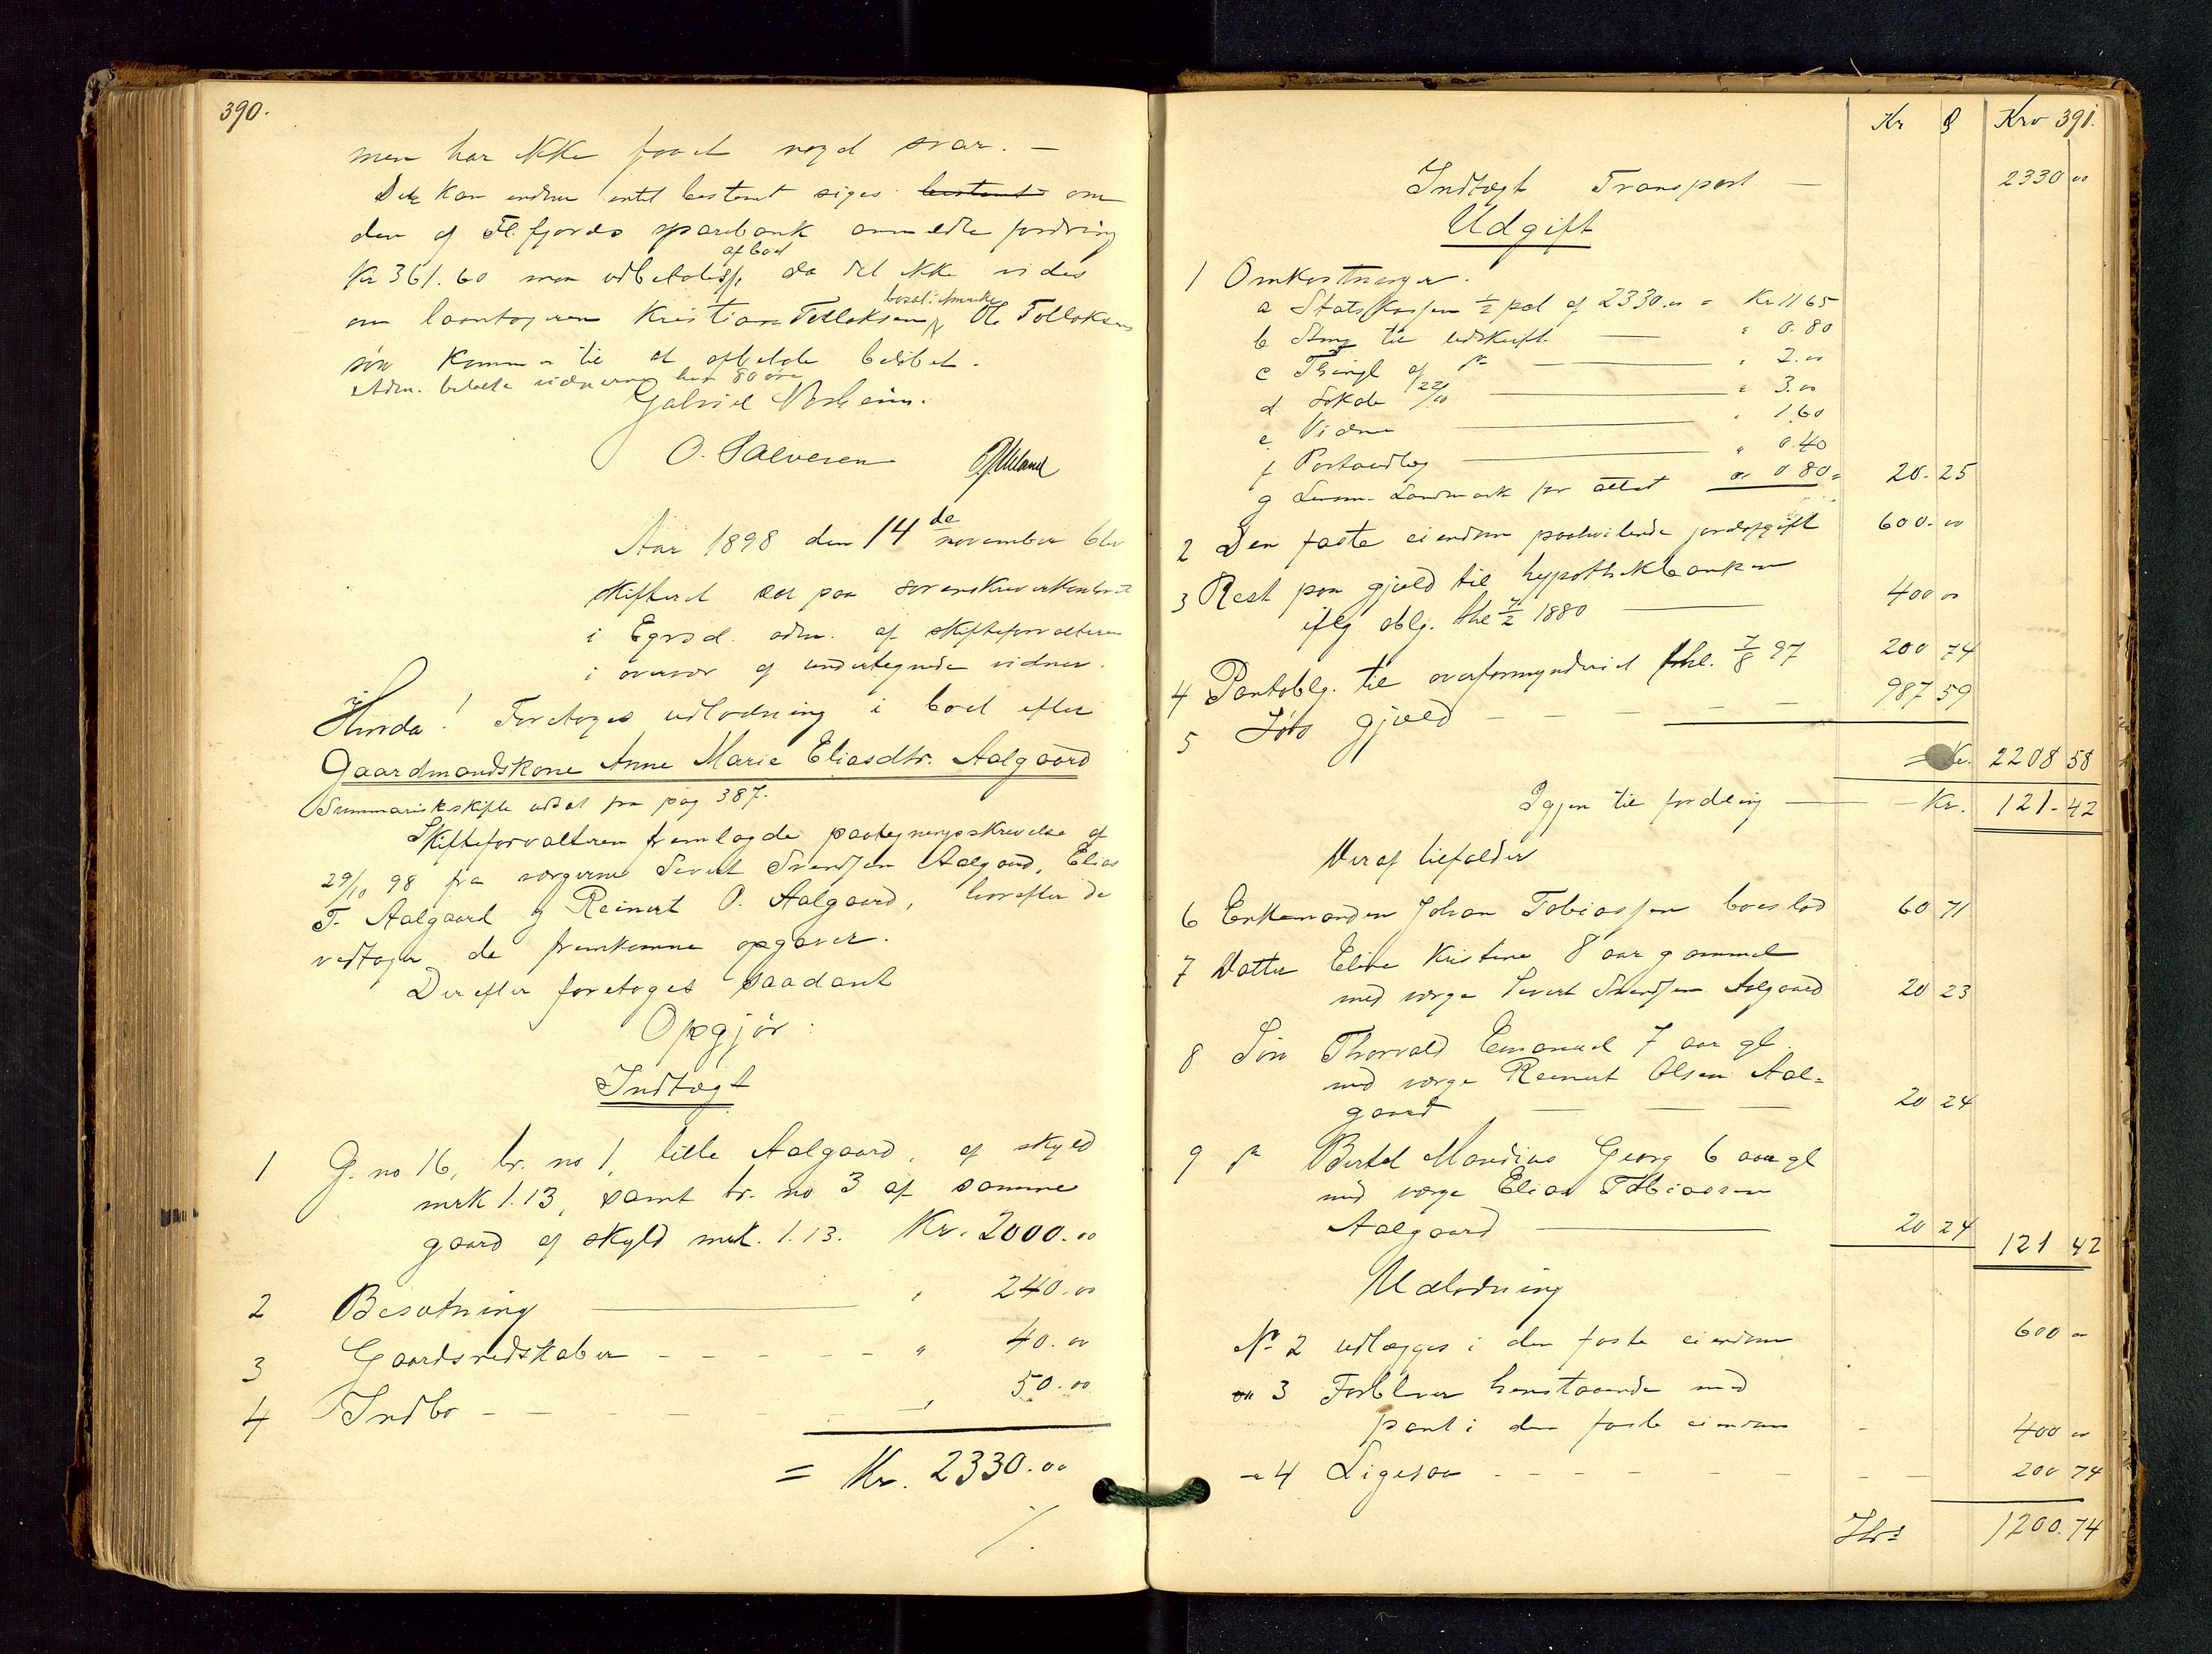 390.
men har ikke faaet nogd svar. —
Det kan endnu intet bestemt siges bestemt om
den af Fl.fjords sparebank anmeldte fordring
Kr 361.60 man udbetales af boet, da det ikke vides
om laantageren Kristian Tollaksen, bosat i Amerika, Ole Tollaksens
søn kommer til at afbetale beløbet.
Adm. betalte vidnerne her 80 øre
Gabriel
O. Salvesen
Aar 1898 den 14de november blev
skifteret sat paa sorenskriverkontoret
i Egrsd. adm. af skifteforvalteren
i overvær af undertegnede vidner.
Hvorda! Foretoges udlodning i boet efter
Gaardmandskone Anne Marie Eliasdtr. Aalgaard
Summariskskifte udsat fra pag 387.
Skifteforvalteren fremlagde paategningsskrivelse af
29/10 98 fra værgerne Severt Svendsen Aalgaard, Elias
T. Aalgaard og Reinert O. Aalgaard, hvorefter de
vedtager de fremkomne opgaver.
Derefter foretoges saadant
Opgjør:
Indtægt
1 G. no 16, br. no 1, lille Aalgaard, af skyld
mrk 1.13, samt br. no 3 af samme
gaard af skyld mrk. 1.13. Kr. 2000.00
2 Besætning — " 240.00
3 Gaardsredskaber - - - - - " 40.00
4 Indbo - - - - - - " 50.00
= Kr. 2330.00
/.
Kr Ø Kro 391.
Indtægt Transport — 2330 00
Udgift
1 Omkostninger.
a Statskassen ½ pct af 2330.00 = Kr 11 65
b Stmp til udskrift — " 0.80
c Thingl af do — " 2.00
d Lokale 22/10 — " 3.00
e Vidner — " 1.60
f Portoudlæg — " 0.40
g Lensm. Landmark for attest " 0 80 = 20.25
2 Den faste eiendom paahvilende jordafgift 600.00
3 Rest paa gjæld til hypothekbanken
iflg oblg. thl 7/2 1880 — 400 00
4 Pantoblg. til overformynderiet thl. 7/8 97 200 74
5 Løs gjæld - - - - - 987 59
= Kr. 2208 58
Igjen til fordeling — Kr. 121-42
Deraf tilfalder
6 Enkemanden Johan Tobiassen boeslod 60 71
7 Datter Eline Kristine 8 aar gammel
med værge Severt Svendsen Aalgaard 20 23
8 Søn Thorvald Emanuel 7 aar gl.
med værge Reinert Olsen Aal=
gaard — — — 20 24
9 do Bertel Mandius Georg 6 aar gl
med værge Elias Tobiassen
Aalgaard — 20 24 121 42
Udlodning
No 2 udlægges i den faste eiendom 600 00
" 3 Forbliver henstaaende med
pant i den faste eiendom - 400 00
" 4 Ligesaa - - - - - - - - 200 74
1200.74